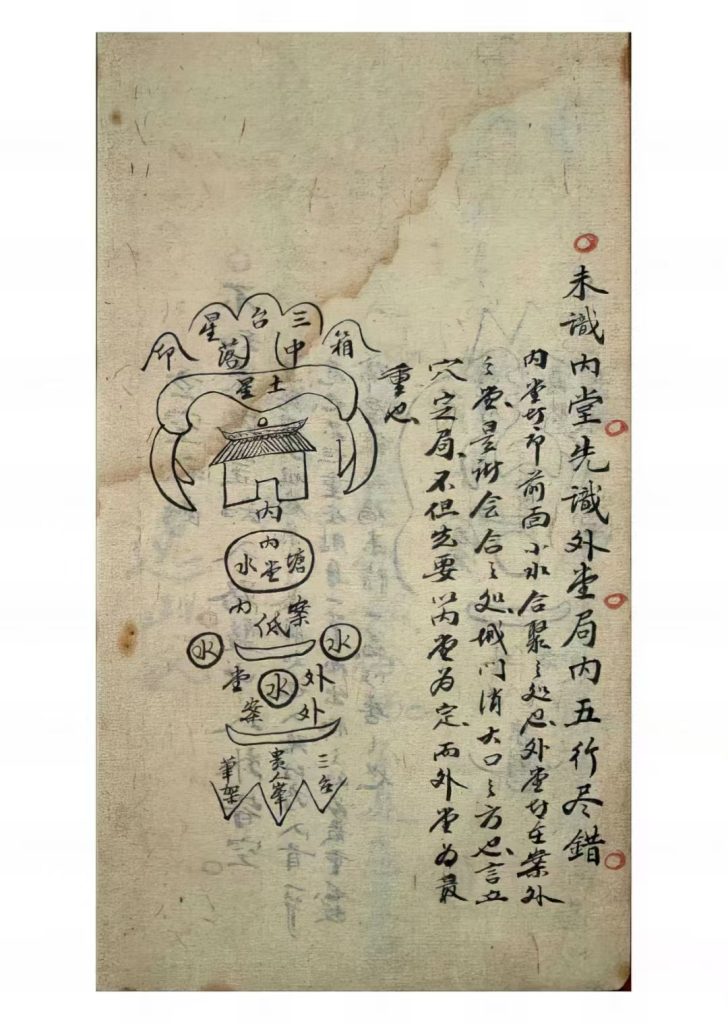 未識内堂先識外堂局内五行尽錯
内堂者即前面小水合聚之处也外堂者在案外
之堂是諸会合之处城门消大口之方也言立
穴定局不但先要以内堂为定而外堂为最
重也
三台星
箱
中落
印
土星
内
内堂
水塘
内低案
水
水
水
外堂
外案
三台
贵人峯
筆架